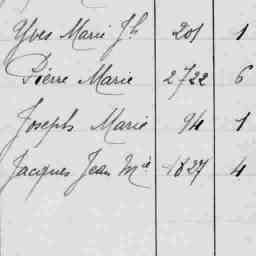 Yves Marie Jh 201 1
Pierre Marie 2722 6
Joseph Marie 94 1
Jacques Jean Mie 1827 4